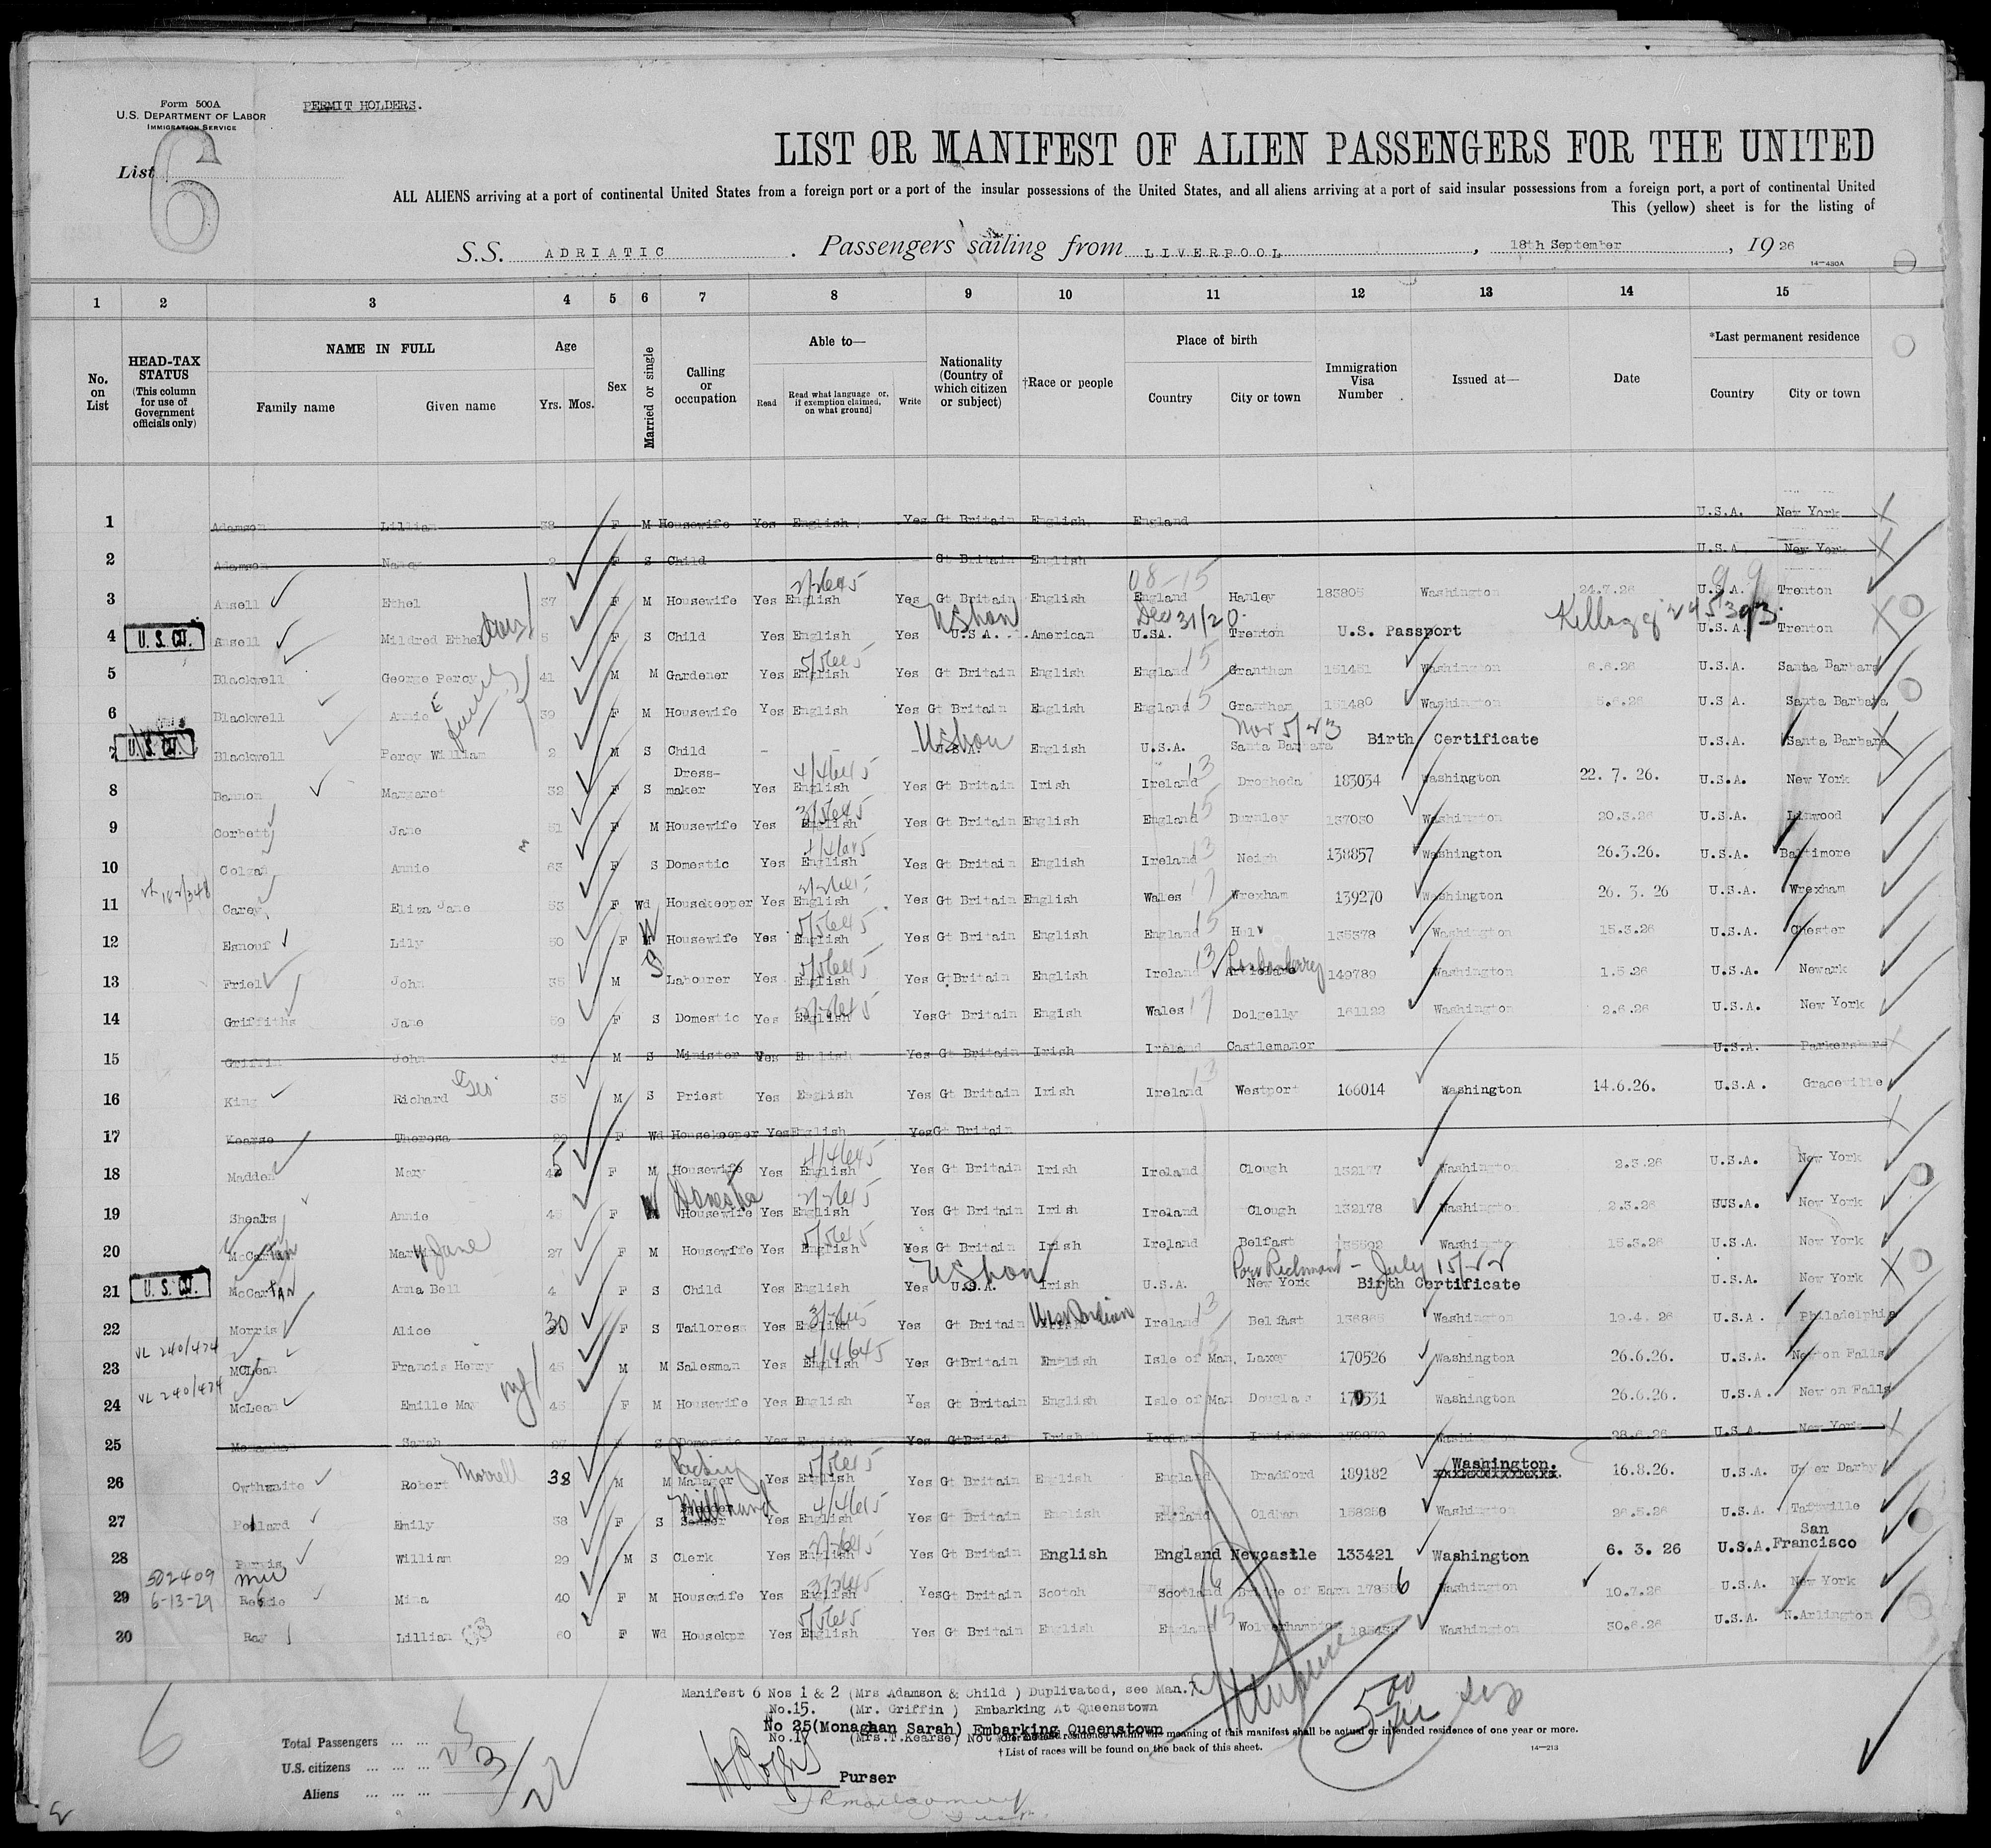 Form 500A
U.S. DEPARTMENT OF LABOR
IMMIGRATION SERVICE
PERMIT HOLDERS.
List 6
LIST OR MANIFEST OF ALIEN PASSENGERS FOR THE UNITED
ALL ALIENS arriving at a port of continental United States from a foreign port or a port of the insular possessions of the United States, and all aliens arriving at a port of said insular possessions from a foreign port, a port of continental United
This (yellow) sheet is for the listing of
S.S. ADRIATIC . Passengers sailing from LIVERPOOL , 18th September , 1926
14—430A
1 2 3 4 5 6 7 8 9 10 11 12 13 14 15
No. on List
HEAD-TAX STATUS (This column for use of Government officials only)
NAME IN FULL
Family name Given name
Age
Yrs. Mos.
Sex
Married or single
Calling or occupation
Able to—
Read
Read what language or, if exemption claimed, on what ground]
Write
Nationality (Country of which citizen or subject)
†Race or people
Place of birth
Country City or town
Immigration Visa Number
Issued at—
Date
*Last permanent residence
Country City or town
1 Adamson Lillian 38 F M Housewife Yes English Yes Gt Britain English England U.S.A. New York
2 Adamson Nancy 2 F S Child Gt Britain English U.S.A New York
3 Ansell Ethel 37 F M Housewife Yes English Yes Gt Britain English England Hanley 183805 Washington 24.7.26 U.S.A. Trenton
4 U.S. CIT. Ansell Mildred Ethel 5 F S Child Yes English Yes U.S.A. American U.SA. Dec 31/20 Trenton U.S. Passport Kellogg 245393 U.S.A. Trenton
5 Blackwell George Percy 41 M M Gardener Yes English Yes Gt Britain English England 15 Grantham 151481 Washington 6.6.26 U.S.A. Santa Barbara
6 Blackwell Annie E 39 F M Housewife Yes English Yes Gt Britain English England 15 Grantham 151480 Washington U.S.A. Santa Barbara
7 U.S. CIT. Blackwell Percy William 2 M S Child - - English U.S.A. Nov 5/23 Santa Barbara Birth Certificate U.S.A. Santa Barbara
8 Bannon Margaret 32 F S Dress-maker Yes English Yes Gt Britain Irish Ireland 13 Drogheda 183034 Washington 22. 7. 26. U.S.A. New York
9 Corbett Jane 51 F M Housewife Yes English Yes Gt Britain English England 15 Burnley 137030 Washington 20.3.26 U.S.A. Linwood
10 Colgan Annie 63 F S Domestic Yes English Yes Gt Britain English Ireland 13 Neigh 138857 Washington 26.3.26. U.S.A. Baltimore
11 Carey Eliza Jane 53 F Wd Housekeeper Yes English Yes Gt Britain English Wales 17 Wrexham 139270 Washington 26. 3. 26 U.S.A. Wrexham
12 Esnouf Lily 50 F W Housewife Yes English Yes Gt Britain English England 15 135378 Washington 15.3.26 U.S.A. Chester
13 Friel John 35 M S Labourer Yes English Yes GtBritain English Ireland 13 Londonderry 149789 Washington 1.5.26 U.S.A. Newark
14 Griffiths Jane 59 F S Domestic Yes English Yes Gt Britain Engish Wales 17 Dolgelly 161122 Washington 2.6.26 U.S.A. New York
15 Griffin John 31 M S Minister Yes English Yes Gt Britain Irish Ireland Castlemanor U.S.A. Parkersburg
16 King Richard Geo 35 M S Priest Yes English Yes Gt Britain Irish Ireland 13 Westport 166014 Washington 14.6.26. U.S.A. Graceville
17 Kearse Theresa 29 F Wd Housekeeper Yes English Yes Gt Britain
18 Madden Mary 45 F M Housewife Yes English Yes Gt Britain Irish Ireland Clough 132177 Washington 2.3.26 U.S.A. New York
19 Shears Annie 45 F W Domestic Housewife Yes English Yes Gt Britain Irish Ireland Clough 132178 Washington 2.3.26 USA. New York
20 McCartan Mary Jane 27 F M Housewife Yes English Yes Gt Britain Irish Ireland Belfast Washington 15.3.26 U.S.A. New York
21 U.S. CIT. McCartan Anna Bell 4 F S Child Yes English Yes U.S.A. Irish U.S.A. Port Richmond - July 15/22 New York Birth Certificate U.S.A. New York
22 Morris Alice 30 F S Tailoress Yes English Yes Gt Britain Ireland 13 Belfast Washington 19.4.26 U.S.A. Philadelphia
23 VL 240/474 McLean Francis Henry 45 M M Salesman Yes English Yes GtBritain English Isle of Man, Laxey 170526 Washington 26.6.26. U.S.A. Newton Falls
24 VL 240/474 McLean Emille May 45 F M Housewife Yes English Yes Gt Britain English Isle of Man Douglas 170531 Washington 26.6.26. U.S.A. Newton Falls
25 Monaghan Sarah 27 S Domestic Yes English Yes GtBritain Irish Ireland Washington 28.6.26 U.S.A. New York
26 Owthwaite Robert Morrell 38 M M Manager Yes English Yes Gt Britain English England Bradford 189182 Washington. 16.8.26. U.S.A. Upper Darby
27 Pollard Emily 38 F S Millhand Yes English Yes Gt Britain English England Oldham 158258 Washington 26.5.26 U.S.A. Taftville
28 Purvis William 29 M S Clerk Yes English Yes Gt Britain English England Newcastle 133421 Washington 6. 3. 26 U.S.A. San Francisco
29 502409 6-13-29 Mina 40 F M Housewife Yes English Yes Gt Britain Scotch Scotland Bridge of Earn Washington 10.7.26 U.S.A. New York
30 Ray Lillian 60 F Wd Housekpr Yes English Yes Gt Britain English England 15 Wolverhampton Washington 30.6.26 U.S.A. N.Arlington
Manifest 6 Nos 1 & 2 (Mrs Adamson & Child ) Duplicated, see Man.
No.15. (Mr. Griffin ) Embarking At Queenstown
No 25(Monaghan Sarah) Embarking Queenstown
No.17 (Mrs.T.Kearse) Not on board
residence within the meaning of this manifest shall be actual or intended residence of one year or more.
† List of races will be found on the back of this sheet.
14—213
6
Total Passengers ... ... ... 25
U.S. citizens ... ... ... 3
Aliens ... ... ... 22
Purser